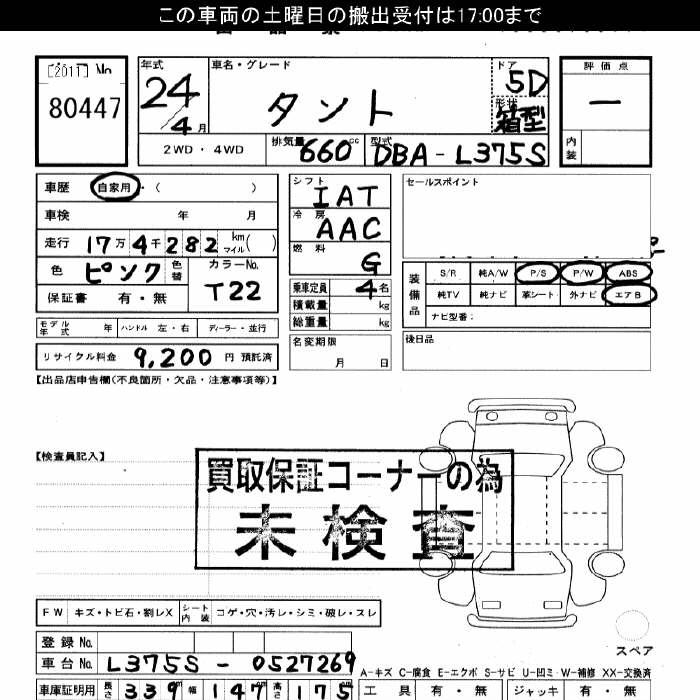 この車両の土曜日の搬出受付は17:00まで
[2011] No
80447
年式
24
4月
車名・グレード
タント
ドア
5D
形状
箱型
評価点
―
内装
2WD・4WD
排気量
660cc
型式
DBA-L375S
車歴 自家用・( )
車検 年 月
走行 17万4千282 km マイル( )
色 ピンク 色替
カラーNo.
T22
保証書 有・無
モデル年式 年 ハンドル 左・右 ディーラー・並行
リサイクル料金 9,200 円 預託済
シフト
IAT
冷房
AAC
燃料
G
乗車定員 4名
積載量 kg
総重量 kg
名変期限
月 日
セールスポイント
装備品
S/R 純A/W P/S P/W ABS
純TV 純ナビ 革シート 外ナビ エアB
ナビ型番:
後日品
【出品店申告欄(不良箇所・欠品・注意事項等)】
【検査員記入】
買取保証コーナーの為
未検査
FW キズ・トビ石・割レX シート内装 コゲ・穴・汚レ・シミ・破レ・スレ
スペア
登録No.
車台No. L375S-0527269
A-キズ C-腐食 E-エクボ S-サビ U-凹ミ W-補修 XX-交換済
車庫証明用 長さ 339 幅 147 高さ 175
工具 有・無 ジャッキ 有・無